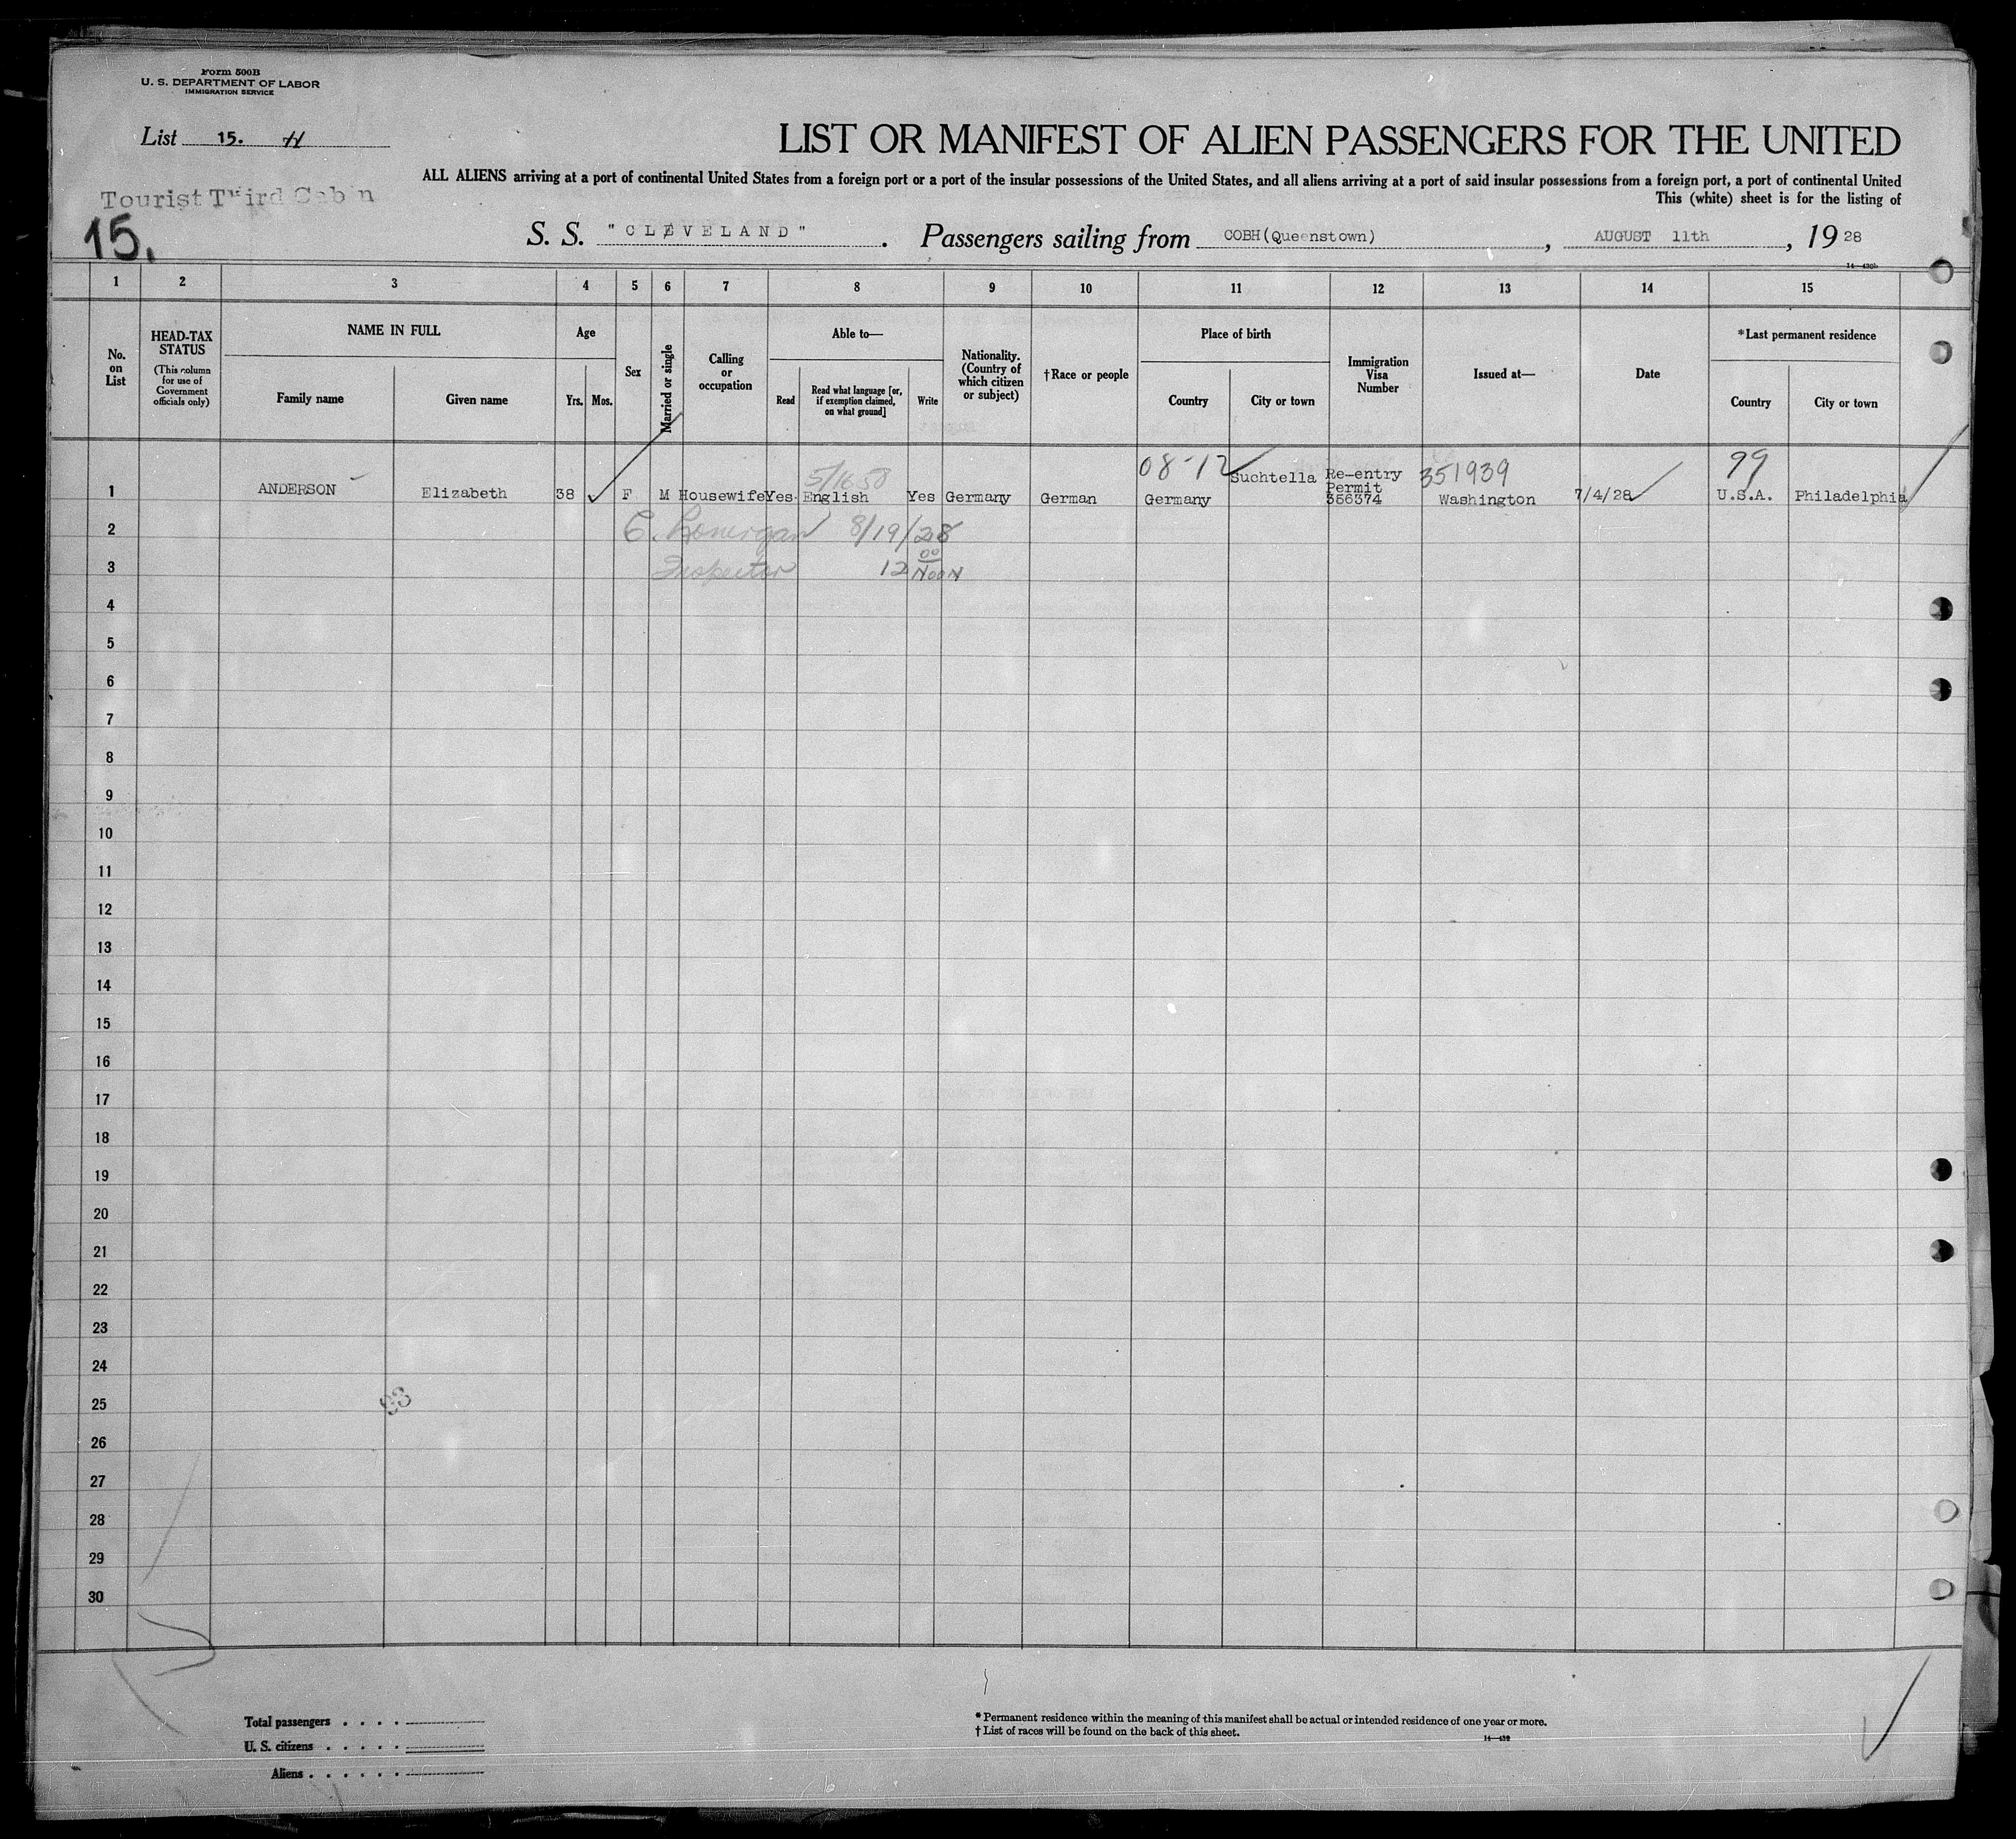 Form 500B
U. S. DEPARTMENT OF LABOR
IMMIGRATION SERVICE
List 15. H
LIST OR MANIFEST OF ALIEN PASSENGERS FOR THE UNITED
ALL ALIENS arriving at a port of continental United States from a foreign port or a port of the insular possessions of the United States, and all aliens arriving at a port of said insular possessions from a foreign port, a port of continental United
This (white) sheet is for the listing of
Tourist Third Cabin
15.
S. S. "CLEVELAND". Passengers sailing from COBH(Queenstown), AUGUST 11th, 19 28
14—430b
1 2 3 4 5 6 7 8 9 10 11 12 13 14 15
No. on List
HEAD-TAX STATUS
(This column for use of Government officials only)
NAME IN FULL
Family name
Given name
Age
Yrs. Mos.
Sex
Married or single
Calling or occupation
Able to—
Read
Read what language [or, if exemption claimed, on what ground]
Write
Nationality. (Country of which citizen or subject)
†Race or people
Place of birth
Country
City or town
Immigration Visa Number
Issued at—
Date
*Last permanent residence
Country
City or town
08-12 351939 99
1 ANDERSON Elizabeth 38 F M Housewife Yes English Yes Germany German Germany Suchtella Re-entry Permit 356374 Washington 7/4/28 U.S.A. Philadelphia
2 8/19/28
3 Inspector 12 00 NOON
4
5
6
7
8
9
10
11
12
13
14
15
16
17
18
19
20
21
22
23
24
25
26
27
28
29
30
Total passengers . . . .
U. S. citizens . . . . .
Aliens . . . . . .
* Permanent residence within the meaning of this manifest shall be actual or intended residence of one year or more.
† List of races will be found on the back of this sheet.